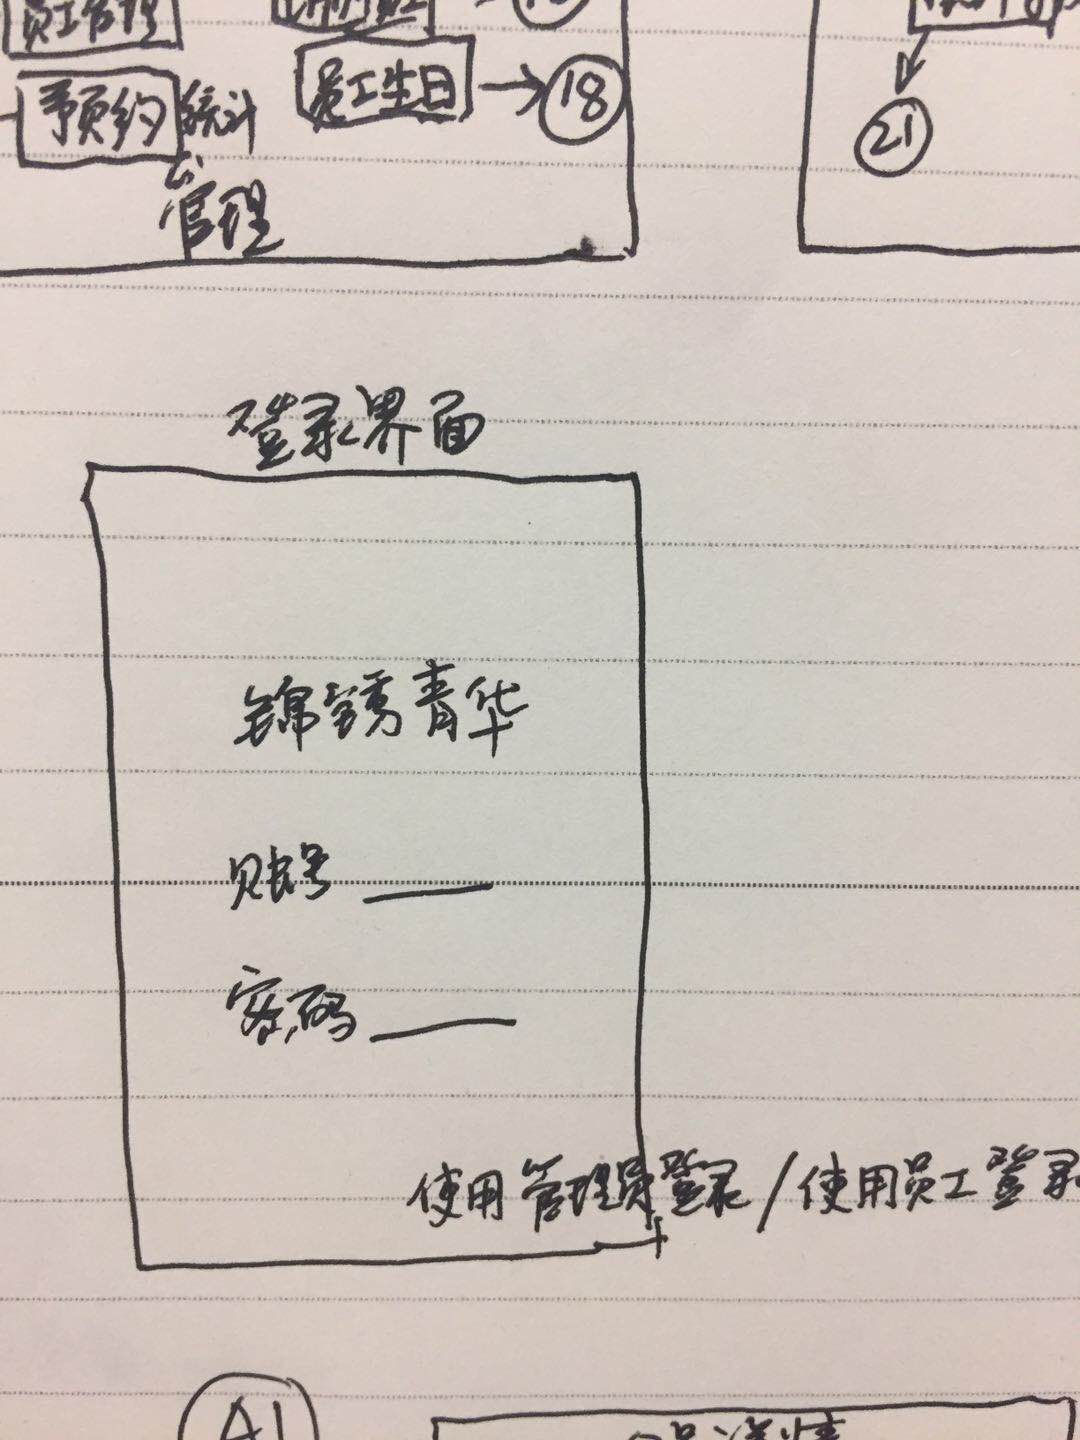 员工管理
预约统计
管理
员工生日
18
21
登录界面
锦锈青华
账号
密码
使用管理员登录/使用员工登录
A1